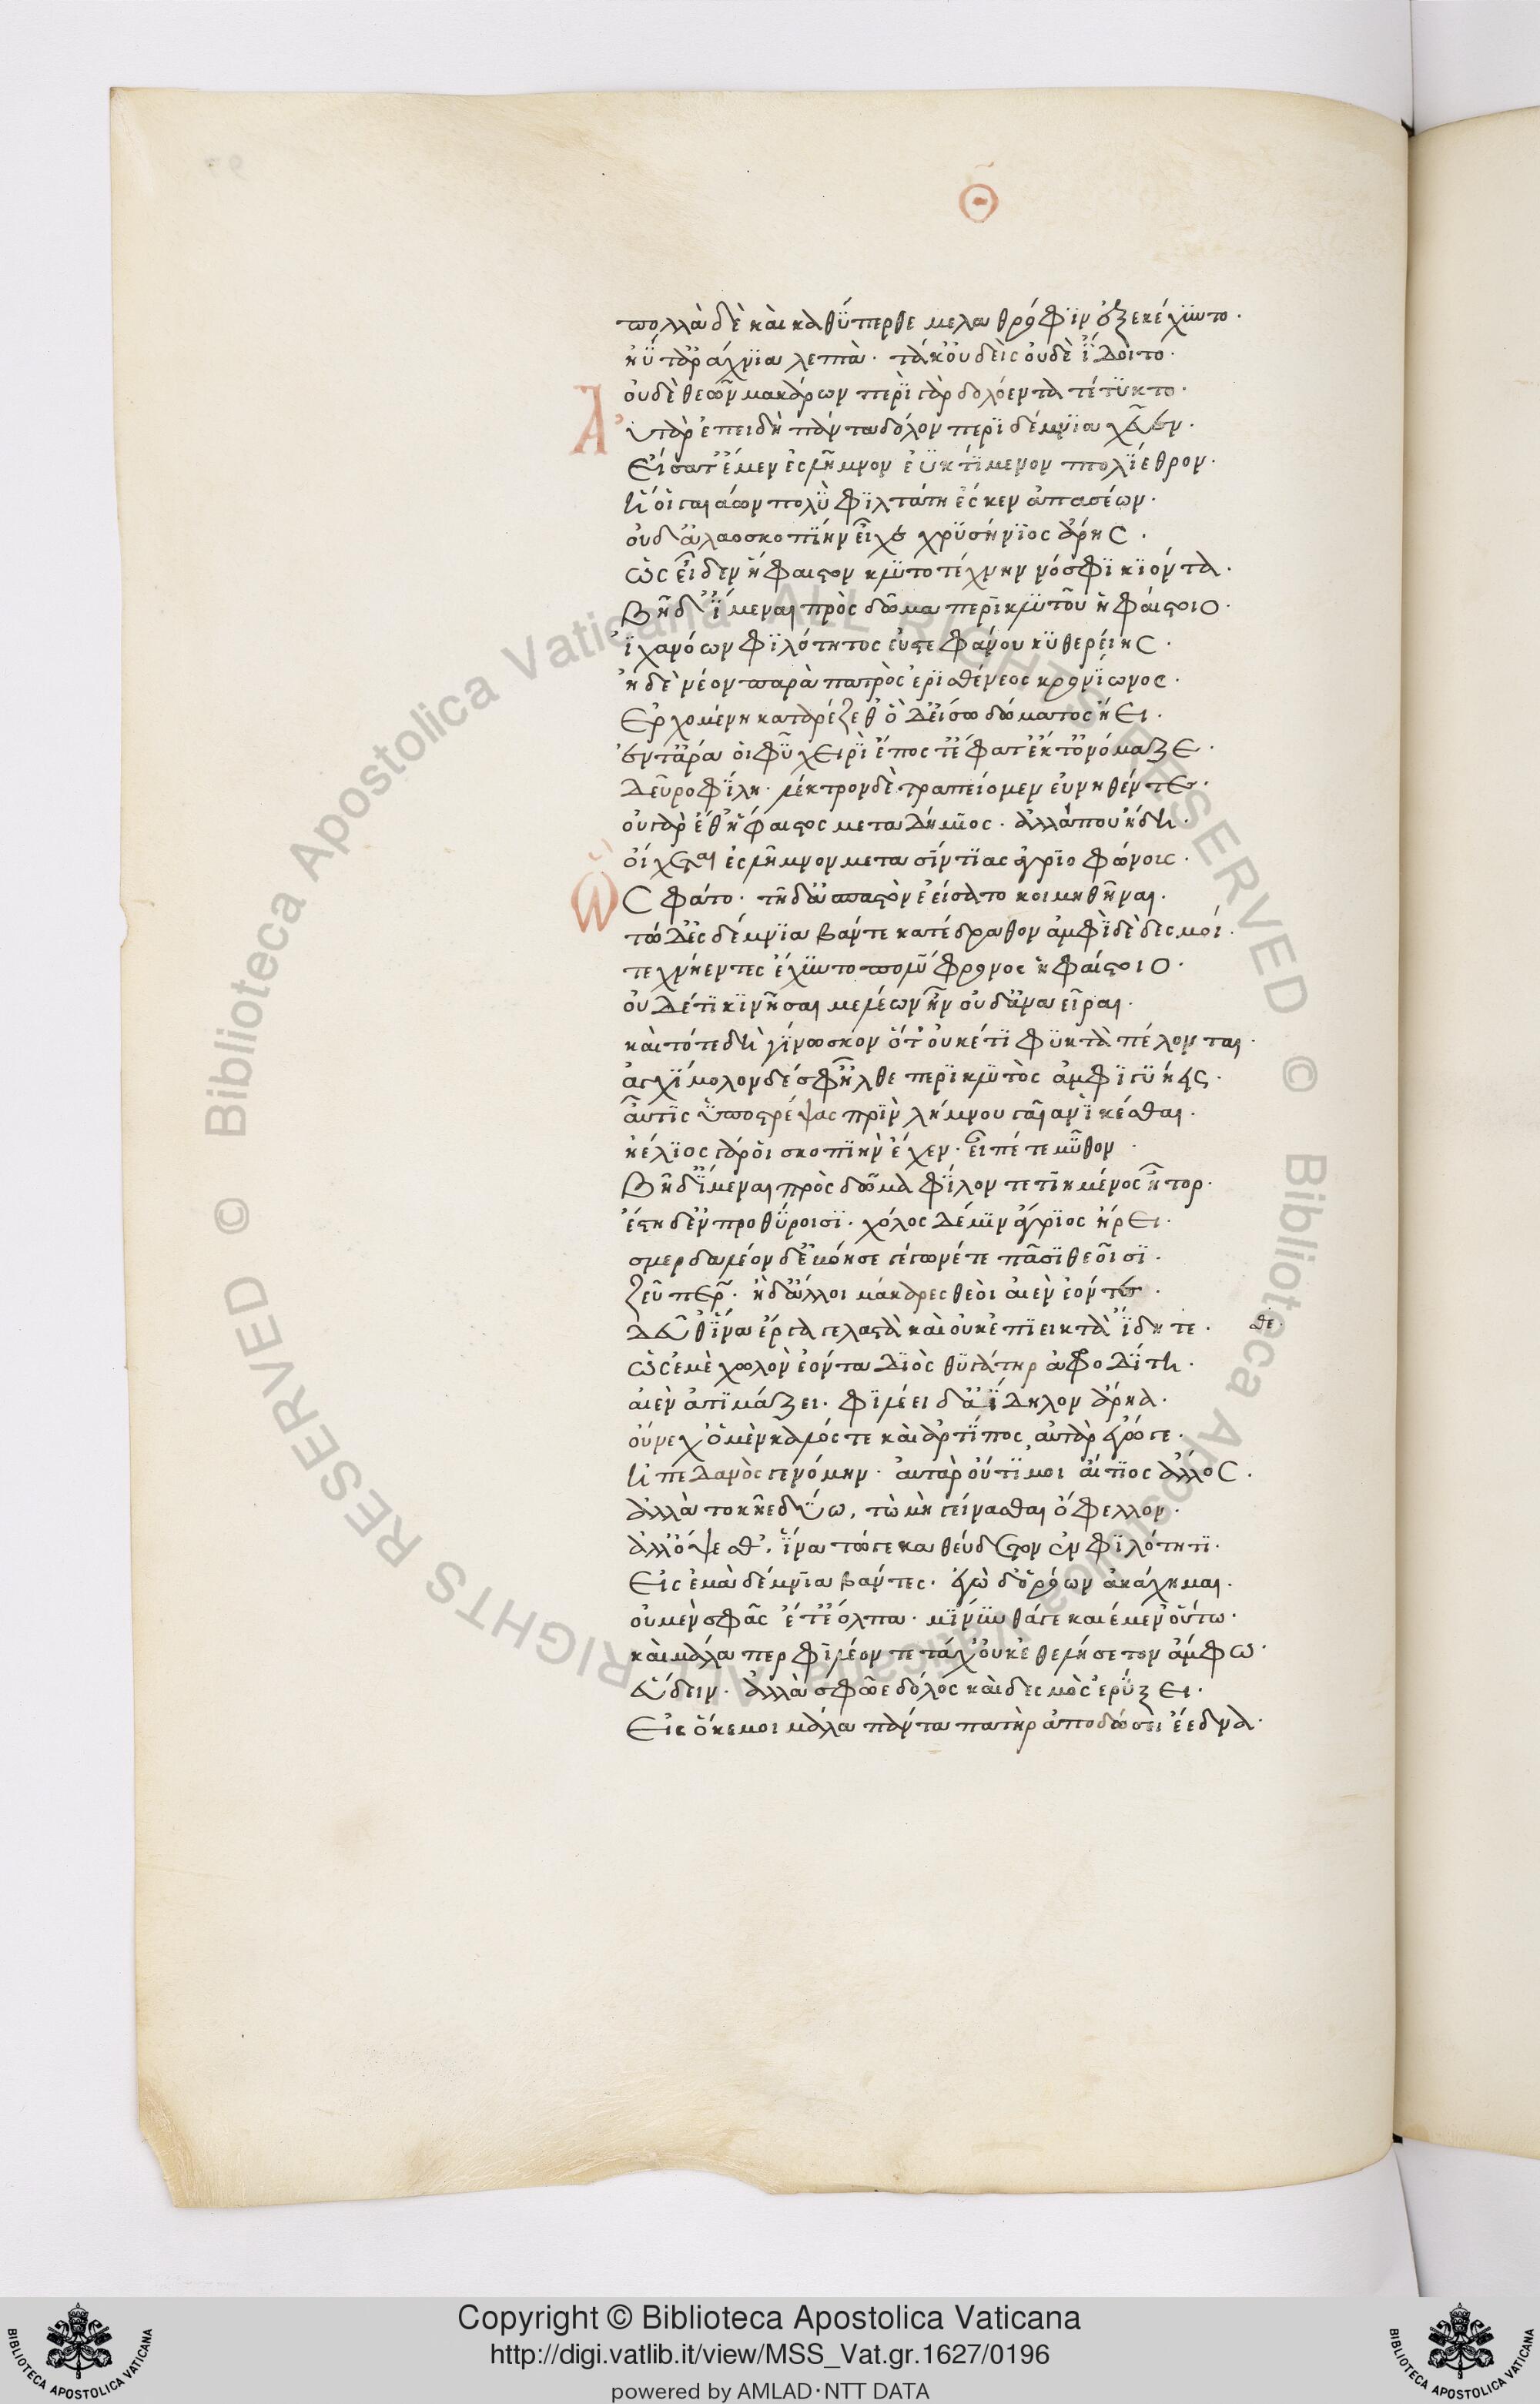 Θ
πολλὰ δὲ καὶ καθΰπερθε μελαθρόφϊν ἐξεκέχϋντο·
ἠΰτ' ἀράχνϊα λεπτὰ· τάκ' οὐδεὶς οὐδὲ ἴ̈δοιτο·
οὐδὲ θεῶν μακάρων περὶ̈ γὰρ δολόεντα τέτϋκτο·
Αὐτὰρ ἐπειδὴ πάντα δόλον περὶ δέμνϊα χεῦεν·
Εἴσατ' ἔμεν ἐς λῆμνον ἐϋκτίμενον πτολΐεθρον·
ἥ οἱ γαιάων πολὺ̈ φϊλτάτη ἔσκεν ἁπασέων·
οὐδ' ἀλαοσκοπΐην εἶχε χρϋσήνϊος ἄρης·
ὡς εἶδεν ἥφαιστον κλϋτοτέχνην νόσφϊ κϊόντα·
Βῆ δ' ἴ̈μεναι πρὸς δῶμα περϊκλϋτοῦ ἡφαίστοιο·
ἰ̈χανόων φϊλότητος εὐστεφάνου κϋθερείης·
ἡ δὲ νέον παρὰ πατρὸς ἐρϊσθένεος κρονΐωνος·
Ερχομένη κατάρέζεθ' ὁ δ' εἴσω δώματος ἤει·
ἔν τ' ἄρα οἱ φῦ χειρὶ̈ ἔπος τ' ἔφατ' ἔκ τ' ὀνόμαζε·
Δεῦρο φΐλη· λέκτρονδὲ τραπείομεν εὐνηθέντες·
οὐ γὰρ ἔθ' ἥφαιστος μεταδήμϊος· ἀλλά που ἤδη·
οἴχεται ἐς λῆμνον μετα σΐντϊας ἀγρϊοφώνους·
Ὣς φάτο· τῆ δ' ἀσπαστὸν ἐείσατο κοιμηθῆναι·
τὼ δ' ἐς δέμνϊα βάντε κατέδραθον ἀμφὶ̈ δὲ δεσμοί·
τεχνήεντες ἔχϋντο πολΰφρονος ἡφαίστοιο·
οὐδέ τϊ κϊνῆσαι μελέων ἦν οὐδ' ἀναεῖραι·
καὶ τότε δὴ γΐνωσκον ὅτ' οὐκέτϊ φϋκτὰ πέλονται·
ἀγχΐμολον δέ σφ' ἦλθε περϊκλϋτὸς ἀμφϊγϋήεις·
αὖτϊς ὑ̈ποστρέψας πρὶ̈ν λήμνου γαῖαν ἱ̈κέσθαι·
ἠέλϊος γάρ οἱ σκοπϊὴν ἔχεν· εἶπέ τε μῦθον·
Βῆ δ' ἴ̈μεναι πρὸς δῶμα φΐλον τετϊημένος ἦτορ·
ἔστη δ' ἐν προθΰροισϊ· χόλος δέ μϊν ἄγρϊος ἥρει·
σμερδαλέον δ' ἐβόησε γέγωνέ τε πᾶσϊ θεοῖσϊ·
Ζεῦ πάτερ· ἠδ' ἄλλοι μάκαρες θεοὶ αἰὲν ἐόντες·
Δεῦθ' ἵ̈να ἔργα γελαστὰ καὶ οὐκ ἐπϊεικτὰ ἴ̈δητε· σθε·
ὡς ἐμὲ χωλὸν ἐόντα Δϊὸς θϋγάτηρ ἀφροδΐτη·
αἰὲν ἀτϊμάζει· φϊλέει δ' ἀΐδηλον ἄρηα·
οὕνεχ' ὁ μὲν καλός τε καὶ ἀρτΐπος, αὐτὰρ ἔγωγε·
ἠπεδανὸς γενόμην· ἀταρ οὔτϊ μοι αἴτϊος ἄλλος·
ἀλλὰ τοκῆε δΰω, τὼ μὴ γείνασθαι ὄφελλον·
ἀλλ' ὄψεσθ', ἵ̈να τώ γε καθεύδετον ἐν φϊλότητϊ·
Εἰς ἐμὰ δέμνϊα βάντες· ἐγὼ δ' ὁρόων ἀκάχημαι·
οὐ μὲν σφᾶς ἔτ' ἔολπα· μΐνϋνθά γε κείέμεν οὕτω·
καὶ μάλα περ φϊλέοντε τάχ' οὐκ ἐθελήσετον ἄμφω·
εὕδειν· ἀλλὰ σφῶε δόλος καὶ δεσμὸς ἐρΰξει·
Εἰς ὅ κε μοι μάλα πάντα πατὴρ ἀποδώσει ἔεδνα·
Copyright © Biblioteca Apostolica Vaticana
http://digi.vatlib.it/view/MSS_Vat.gr.1627/0196
powered by AMLAD·NTT DATA